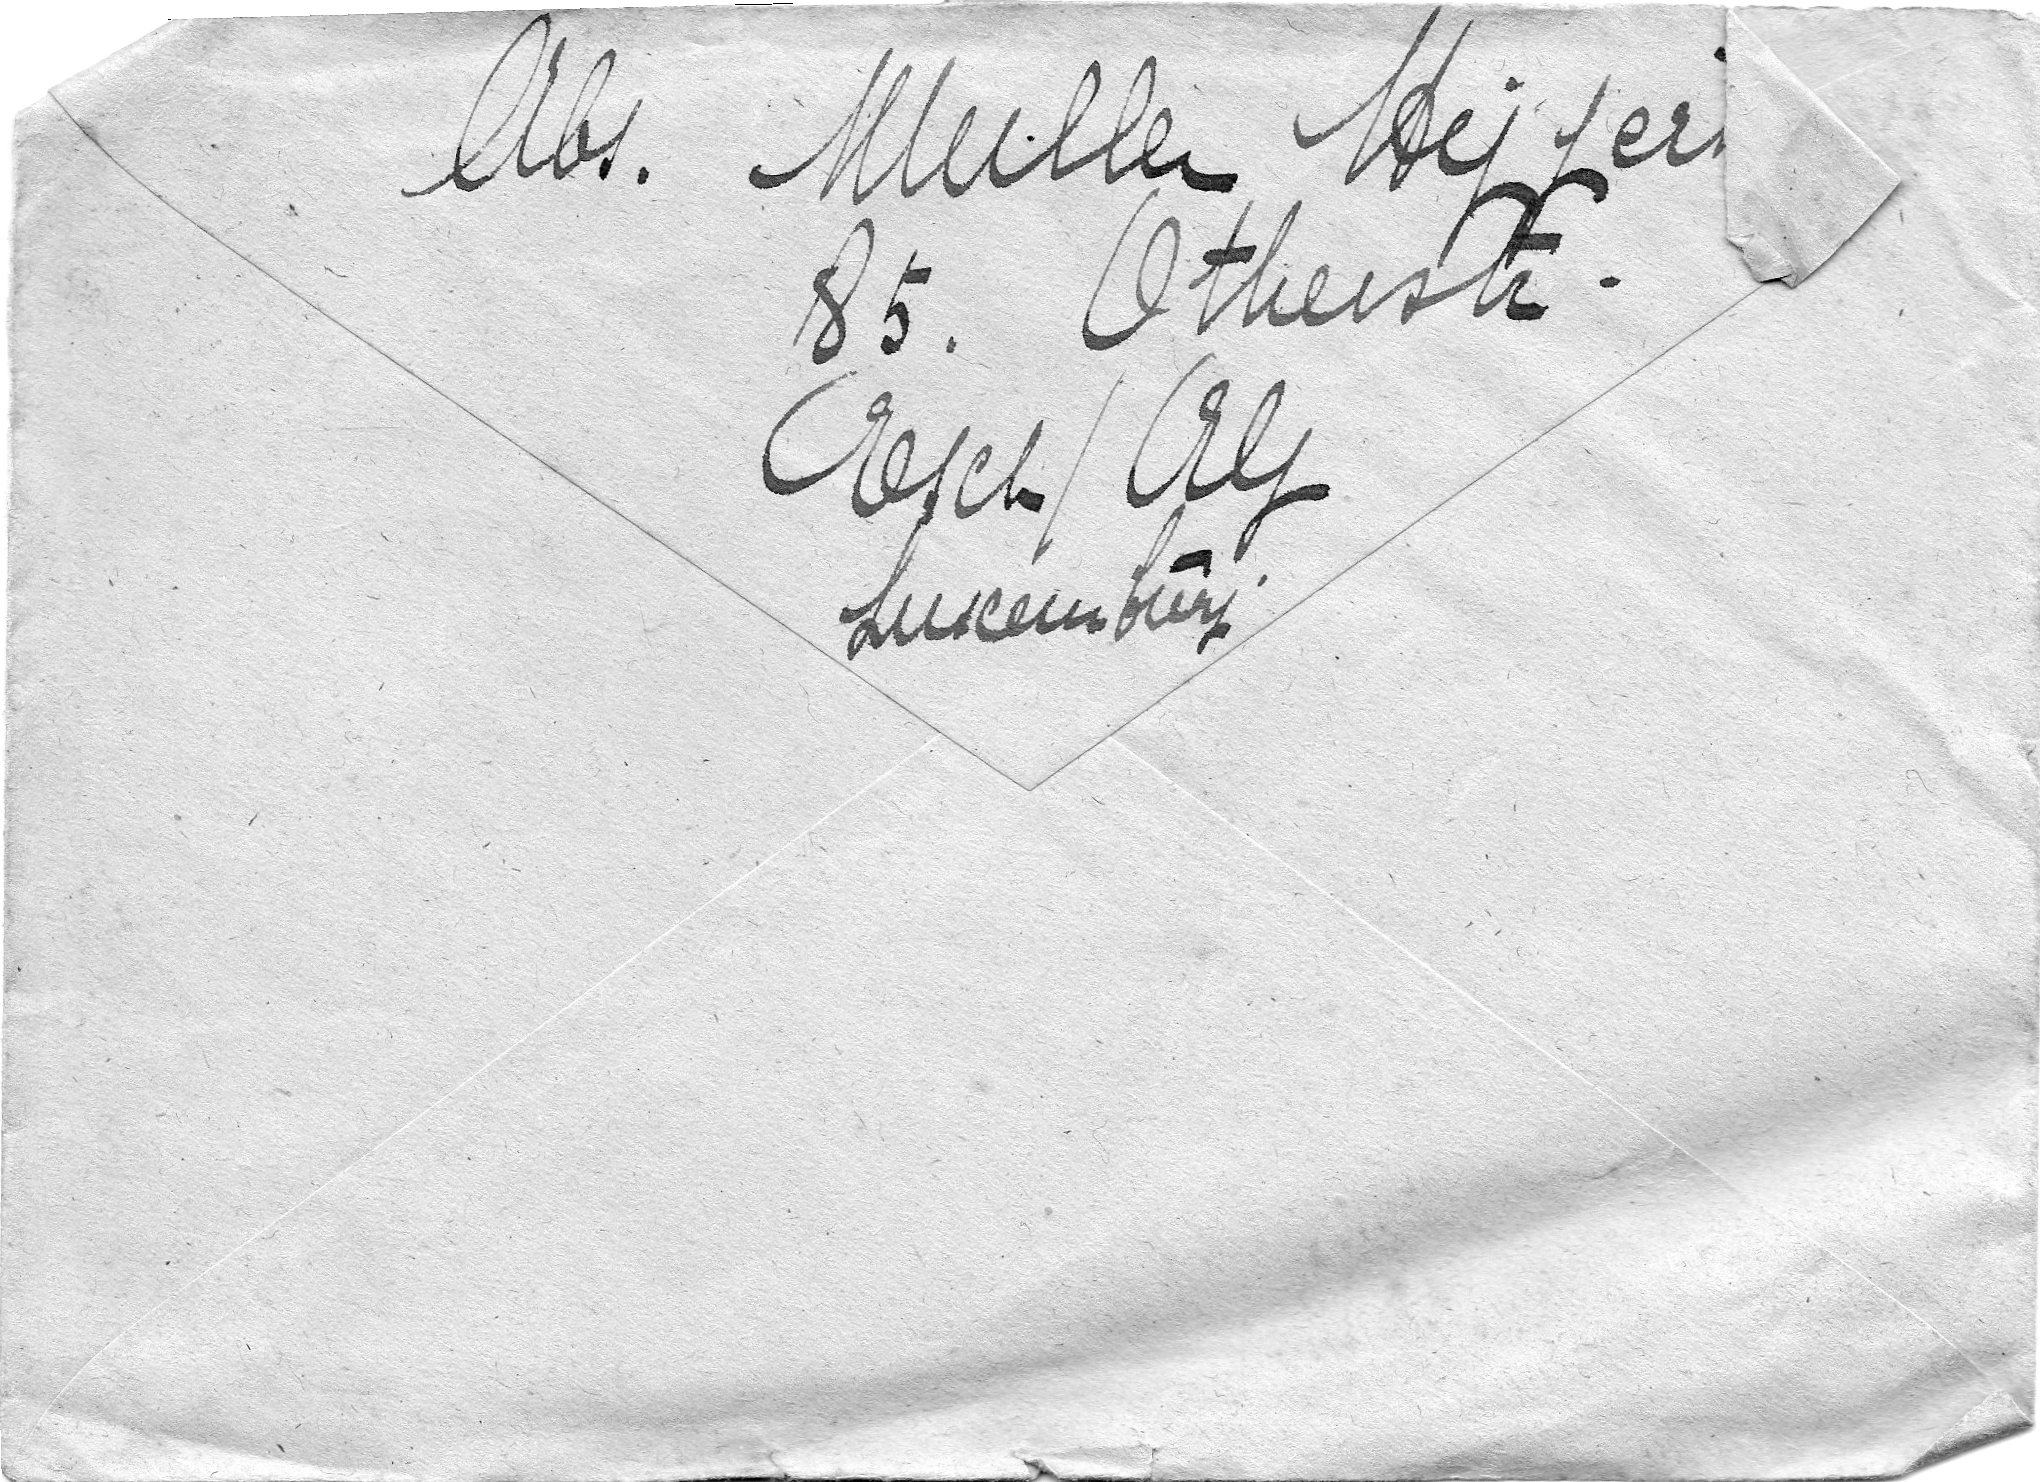 Abs. Muller
85. Otherstr.
Esch/Alz
Luxemburg